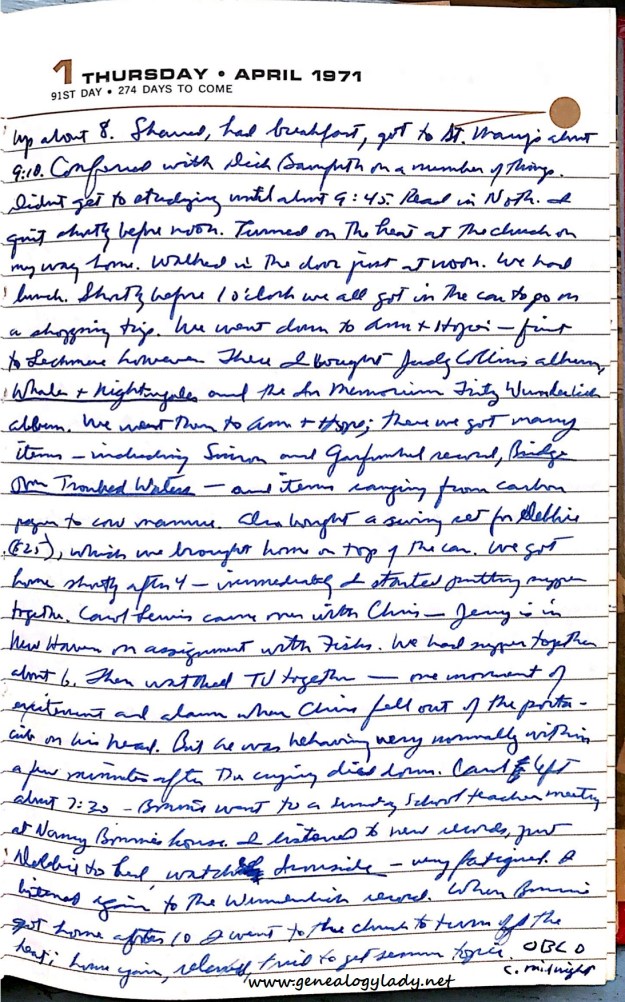 1 THURSDAY • APRIL 1971
91ST DAY • 274 DAYS TO COME
Up about 8. Shaved, had breakfast, got to St. Mary's about
9:10. Conferred with Dick on a number of things.
Didn't get to studying until about 9:45. Read in Noth. I
quit shortly before noon. Turned on the heat at the church on
my way home. Walked in the door just at noon. We had
lunch. Shortly before 1 o'clock we all got in the car to go on
a shopping trip. We went down to Ann + Hope's – first
to Lechmere however. There I bought Judy Collins album,
Whales + Nightingales and the In Memorium Fritz Wunderlich
album. We went then to Ann + Hope; there we got many
items – including Simon and Garfunkel record, Bridge
Over Troubled Waters – and items ranging from carbon
paper to cow manure. Also bought a swing set for Debbie
($25), which we brought home on top of the car. We got
home shortly after 4 – immediately I started putting supper
together. Carol Lewis came over with Chris – Jerry is in
New Haven on assignment with Fisks. We had supper together
about 6. Then watched TV together – one moment of
excitement and alarm when Chris fell out of the porta-
crib on his head. But he was behaving very normally within
a few minutes after the crying died down. Carol left
about 7:30 – Bonnie went to a Sunday School teacher meeting
at Nancy house. I listened to new records, put
Debbie to bed, watched Ironside – very fatigued. I
listened again to the Wunderlich record. When Bonnie
got home after 10 I went to the church to turn off the
heat; home again, relaxed, tried to get sermon topic. OBLO
c. midnight
www.genealogylady.net